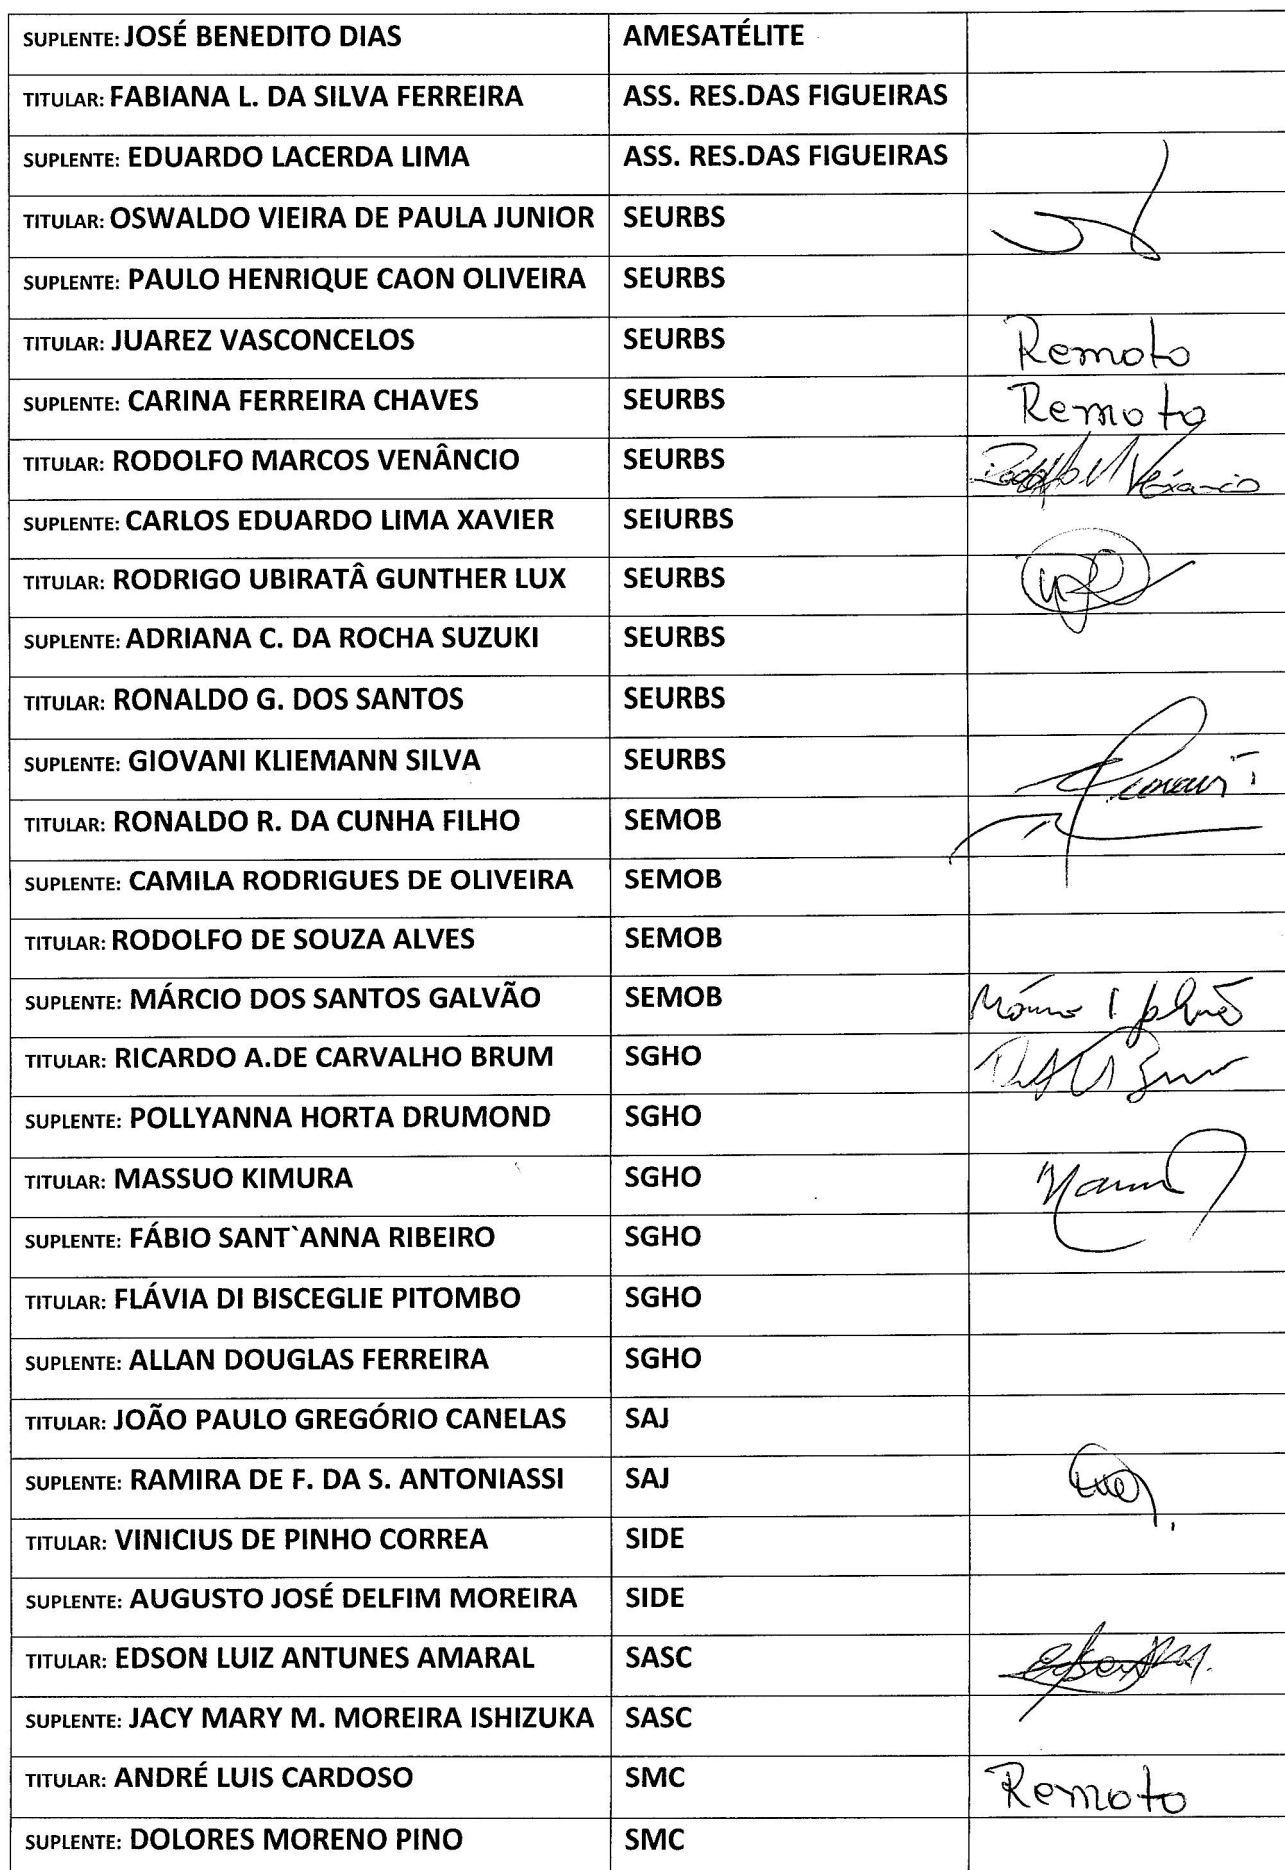 SUPLENTE: JOSÉ BENEDITO DIAS AMESATÉLITE
TITULAR: FABIANA L. DA SILVA FERREIRA ASS. RES.DAS FIGUEIRAS
SUPLENTE: EDUARDO LACERDA LIMA ASS. RES.DAS FIGUEIRAS
TITULAR: OSWALDO VIEIRA DE PAULA JUNIOR SEURBS
SUPLENTE: PAULO HENRIQUE CAON OLIVEIRA SEURBS
TITULAR: JUAREZ VASCONCELOS SEURBS Remoto
SUPLENTE: CARINA FERREIRA CHAVES SEURBS Remoto
TITULAR: RODOLFO MARCOS VENÂNCIO SEURBS
SUPLENTE: CARLOS EDUARDO LIMA XAVIER SEIURBS
TITULAR: RODRIGO UBIRATÂ GUNTHER LUX SEURBS
SUPLENTE: ADRIANA C. DA ROCHA SUZUKI SEURBS
TITULAR: RONALDO G. DOS SANTOS SEURBS
SUPLENTE: GIOVANI KLIEMANN SILVA SEURBS
TITULAR: RONALDO R. DA CUNHA FILHO SEMOB
SUPLENTE: CAMILA RODRIGUES DE OLIVEIRA SEMOB
TITULAR: RODOLFO DE SOUZA ALVES SEMOB
SUPLENTE: MÁRCIO DOS SANTOS GALVÃO SEMOB
TITULAR: RICARDO A.DE CARVALHO BRUM SGHO
SUPLENTE: POLLYANNA HORTA DRUMOND SGHO
TITULAR: MASSUO KIMURA SGHO
SUPLENTE: FÁBIO SANT`ANNA RIBEIRO SGHO
TITULAR: FLÁVIA DI BISCEGLIE PITOMBO SGHO
SUPLENTE: ALLAN DOUGLAS FERREIRA SGHO
TITULAR: JOÃO PAULO GREGÓRIO CANELAS SAJ
SUPLENTE: RAMIRA DE F. DA S. ANTONIASSI SAJ
TITULAR: VINICIUS DE PINHO CORREA SIDE
SUPLENTE: AUGUSTO JOSÉ DELFIM MOREIRA SIDE
TITULAR: EDSON LUIZ ANTUNES AMARAL SASC
SUPLENTE: JACY MARY M. MOREIRA ISHIZUKA SASC
TITULAR: ANDRÉ LUIS CARDOSO SMC Remoto
SUPLENTE: DOLORES MORENO PINO SMC